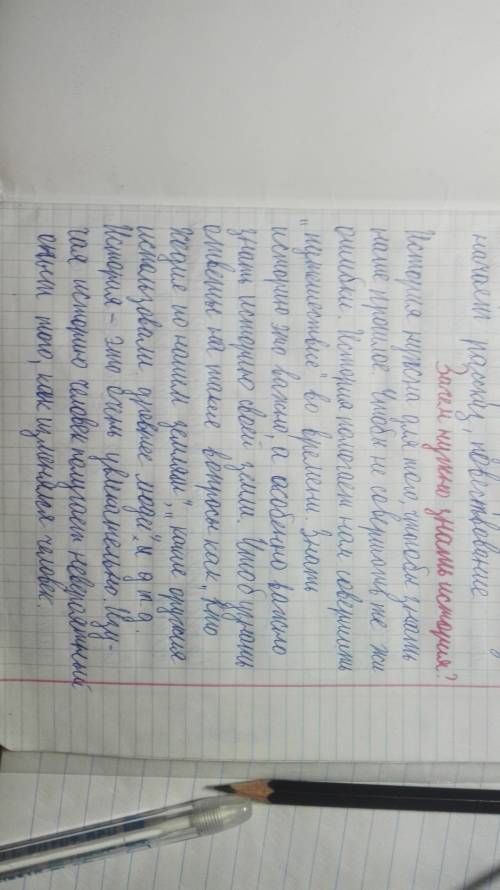 начает разказ, повествование
Зачем нужно знать история?
История нужна для того, чтобы знать
наше прошлое. Чтобы не совершать те же
ошибки. История помогает нам совершить
"путешествие" во времени. Знать
историю это важно, а особенно важно
знать историю свой земли. Чтоб узнать
ответы на такие вопросы как "кто
ходие по нашим землям", "какие оружие
использовали древние люди" и д т.д.
История - это очень увлекательно. Изу-
чая историю человек получает невероятный
опыт того, как изменялся человек.